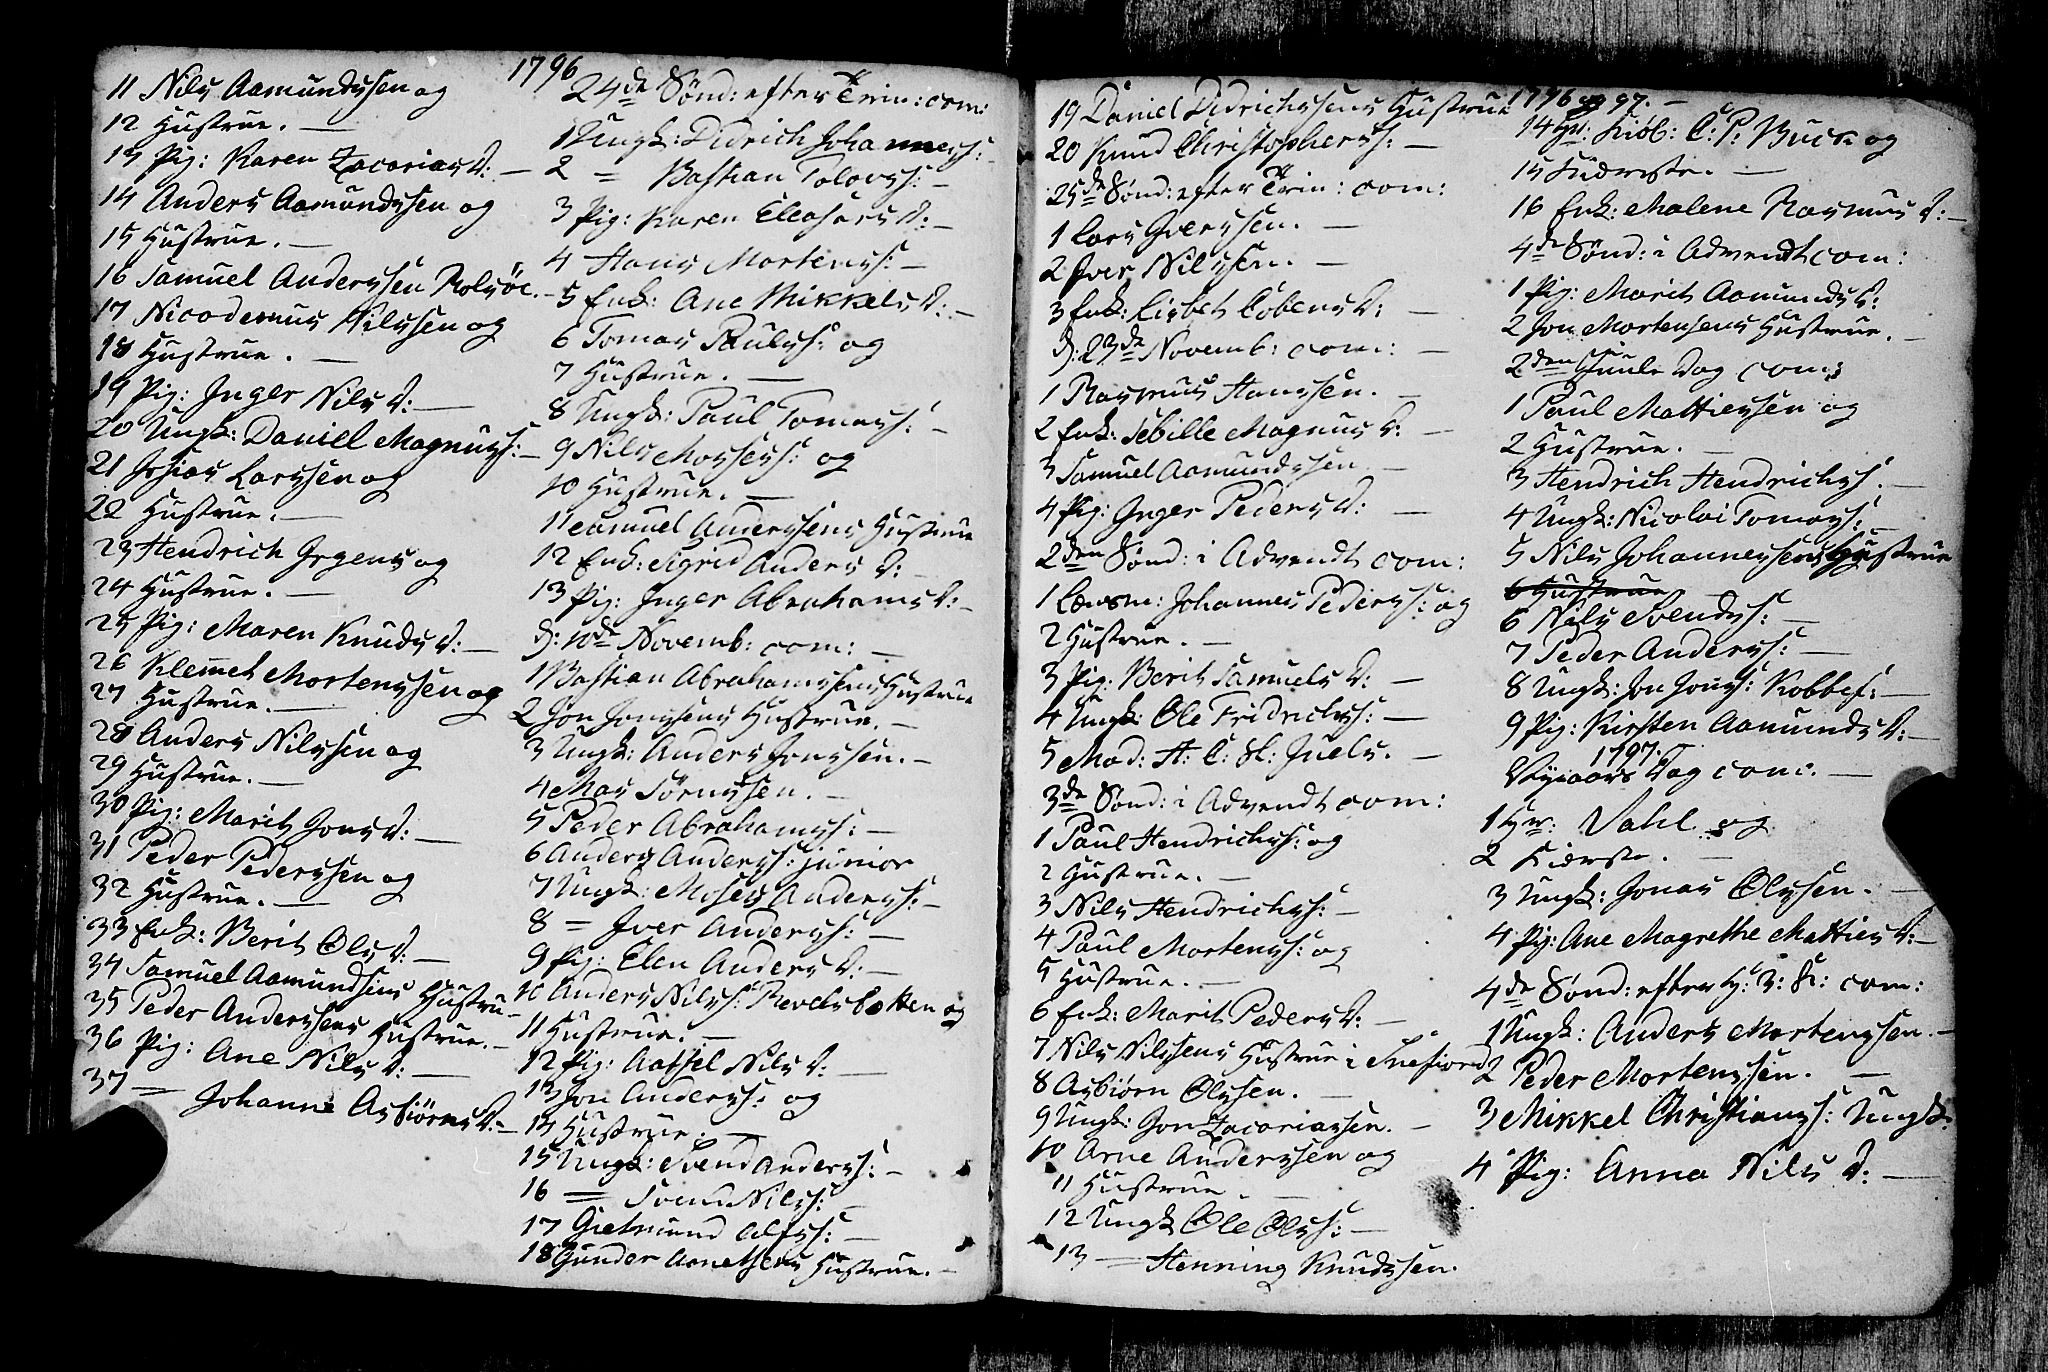 1796
11 Nils Aamundssen og
12 Hustrue. —
13 Pig: Karen Zacarias D: —
14 Anders Aamundssen og
15 Hustrue. —
16 Samuel Anderssen Rolsöe. —
17 Nicodemus Nilssen og
18 Hustrue. —
19 Pig: Inger Nils D: —
20 Ungk: Daniel Magnuss: —
21 Josias Larssen og
22 Hustrue. —
23 Hendrich Grgens og
24 Hustrue. —
25 Pig: Maren Knuds D: —
26 Klemmet Mortenssen og
27 Hustrue. —
28 Anders Nilssen og
29 Hustrue. —
30 Pig: Marit Jons D: —
31 Peder Pederssen og
32 Hustrue. —
33 Enk: Berit Ols D: —
34 Samuel Aamundsens Hustru —
35 Peder Anderssens Hustrue. —
36 Pig: Ane Nils D: —
37 = Johanne Asbiörns D: —
24de Sönd: efter Trin: com:
1 Ungk: Didrich Johanness: —
2 = Bastian Tolovs: —
3 Pig: Karen Eleasars D: —
4 Hans Mortens: —
5 Enk: Ane Mikkels D: —
6 Tomas Pauls: og
7 Hustrue. —
8 Ungk: Paul Tomas: —
9 Nils Moses: og
10 Hustrue. —
11 Samuel Anderssens Hustrue
12 Enk: Sigrid Anders D: —
13 Pig: Inger Abrahams D: —
D: 10de Novemb: com: —
1 Bastian Abrahamssens Hustrue
2 Jon Jonssens Hustrue. —
3 Ungk: Anders Jonssen. —
4 Mas Sörenssen. —
5 Peder Abrahamss: —
6 Anders Anderss: junior
7 Ungk: Moses Anderss: —
8 = Iver Anderss: —
9 Pig: Elen Anders D: —
10 Anders Nilss: Revelsbotten og
11 Hustrue. —
12 Pig: Aassel Nils D: —
13 Jon Anderss: og
13 Hustrue. —
15 Ungk: Svend Anderss: —
16 = Svend Nilss: —
17 Gietmund Alfs: —
18 Gunder Arnetsens Hustrue. —
1796 og 97. —
19 Daniel Didrichssens Hustrue
20 Knud Christophers: —
25de Sönd: efter Trin: com:
1 Lars Iverssen. —
2 Iver Nilssen. —
3 Enk: Lisbet Cobens D: —
D: 23de Novemb: com: —
1 Rasmus Hanssen. —
2 Enk: Sebille Magnus D: —
3 Samuel Aamundssen. —
4 Pig: Inger Peders D: —
2den Sönd: i Advendt com:
1 Lænsm: Johannes Peders: og
2 Hustrue. —
3 Pig: Berit Samuels D: —
4 Ungk: Ole Fridrichs: —
5 Mad: H: C: Sl: Juels. —
3de Sönd: i Advendt com:
1 Paul Hendrichs: og
2 Hustrue. —
3 Nils Hendrichs: —
4 Paul Mortens: og
5 Hustrue. —
6 Enk: Marit Peders D: —
7 Nils Nilssens Hustrue i Snefiord
8 Asbiörn Olssen. —
9 Ungk: Jon Zacariassen. —
10 Arne Anderssen og
11 Hustrue. —
12 Ungk Ole Olss: —
13 — Henning Knudssen.
14 Hr: Kiöb: C: P: Buck og
15 Kiæreste. —
16 Enk: Malene Rasmus D: —
4de Sönd: i Advendt com:
1 Pig: Marit Aamunds D:
2 Jon Mortensens Hustrue. —
2den Juule Dag com:
1 Paul Mattiessen og
2 Hustrue. —
3 Hendrich Hendrichs: —
4 Ungk: Nicolai Tomas: —
5 Nils Johannessens Hustrue
6 Hustrue —
6 Nils Svends: —
7 Peder Anderss: —
8 Ungk: Jon Jons: Kobbef: —
9 Pig: Kirsten Aamunds D: —
1797.
Nyeaars Dag com: —
1 Hr: Dahl og
2 Kiæreste. —
3 Ungk: Jonas Olssen. —
4 Pig: Ane Magrethe Matties D: —
4de Sönd: efter H: 3: K: com:
1 Ungk: Anders Mortenssen. —
2 Peder Mortenssen. —
3 Mikkel Christians: Ungk:
4 Pig: Anna Nils D: —